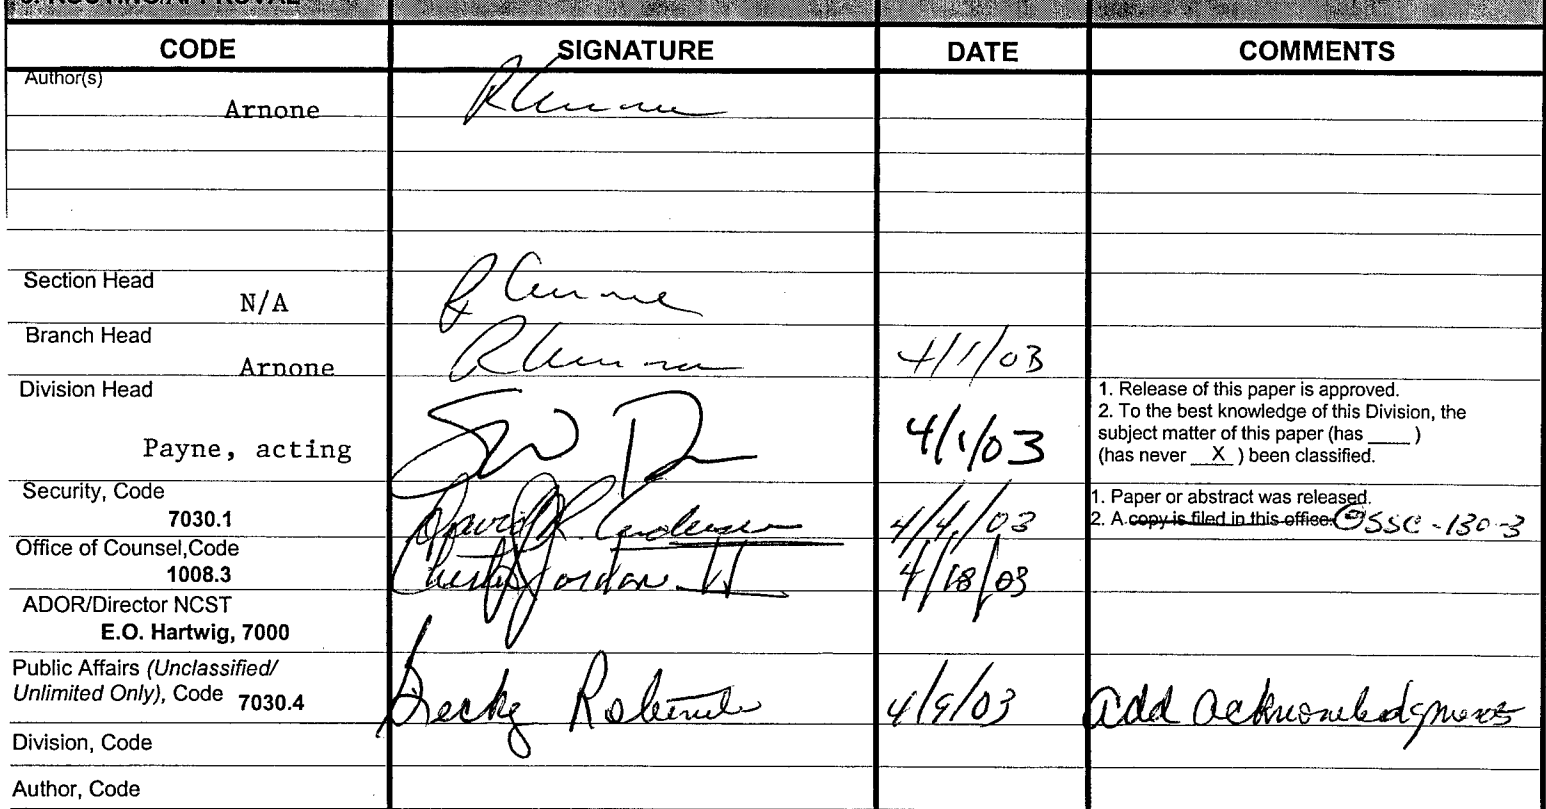 CODE SIGNATURE DATE COMMENTS
Author(s)
Arnone R Arnone
Section Head
N/A R Arnone
Branch Head
Arnone R Arnone 4/1/03
Division Head
Payne, acting 4/1/03
1. Release of this paper is approved.
2. To the best knowledge of this Division, the
subject matter of this paper (has ____ )
(has never __X__ ) been classified.
Security, Code
7030.1 David R. Anderson 4/4/03
1. Paper or abstract was released.
2. A copy is filed in this office. SSC-130-3
Office of Counsel,Code
1008.3 Jordan II 4/18/03
ADOR/Director NCST
E.O. Hartwig, 7000
Public Affairs (Unclassified/
Unlimited Only), Code 7030.4 Becky 4/9/03 add acknowledgments
Division, Code
Author, Code